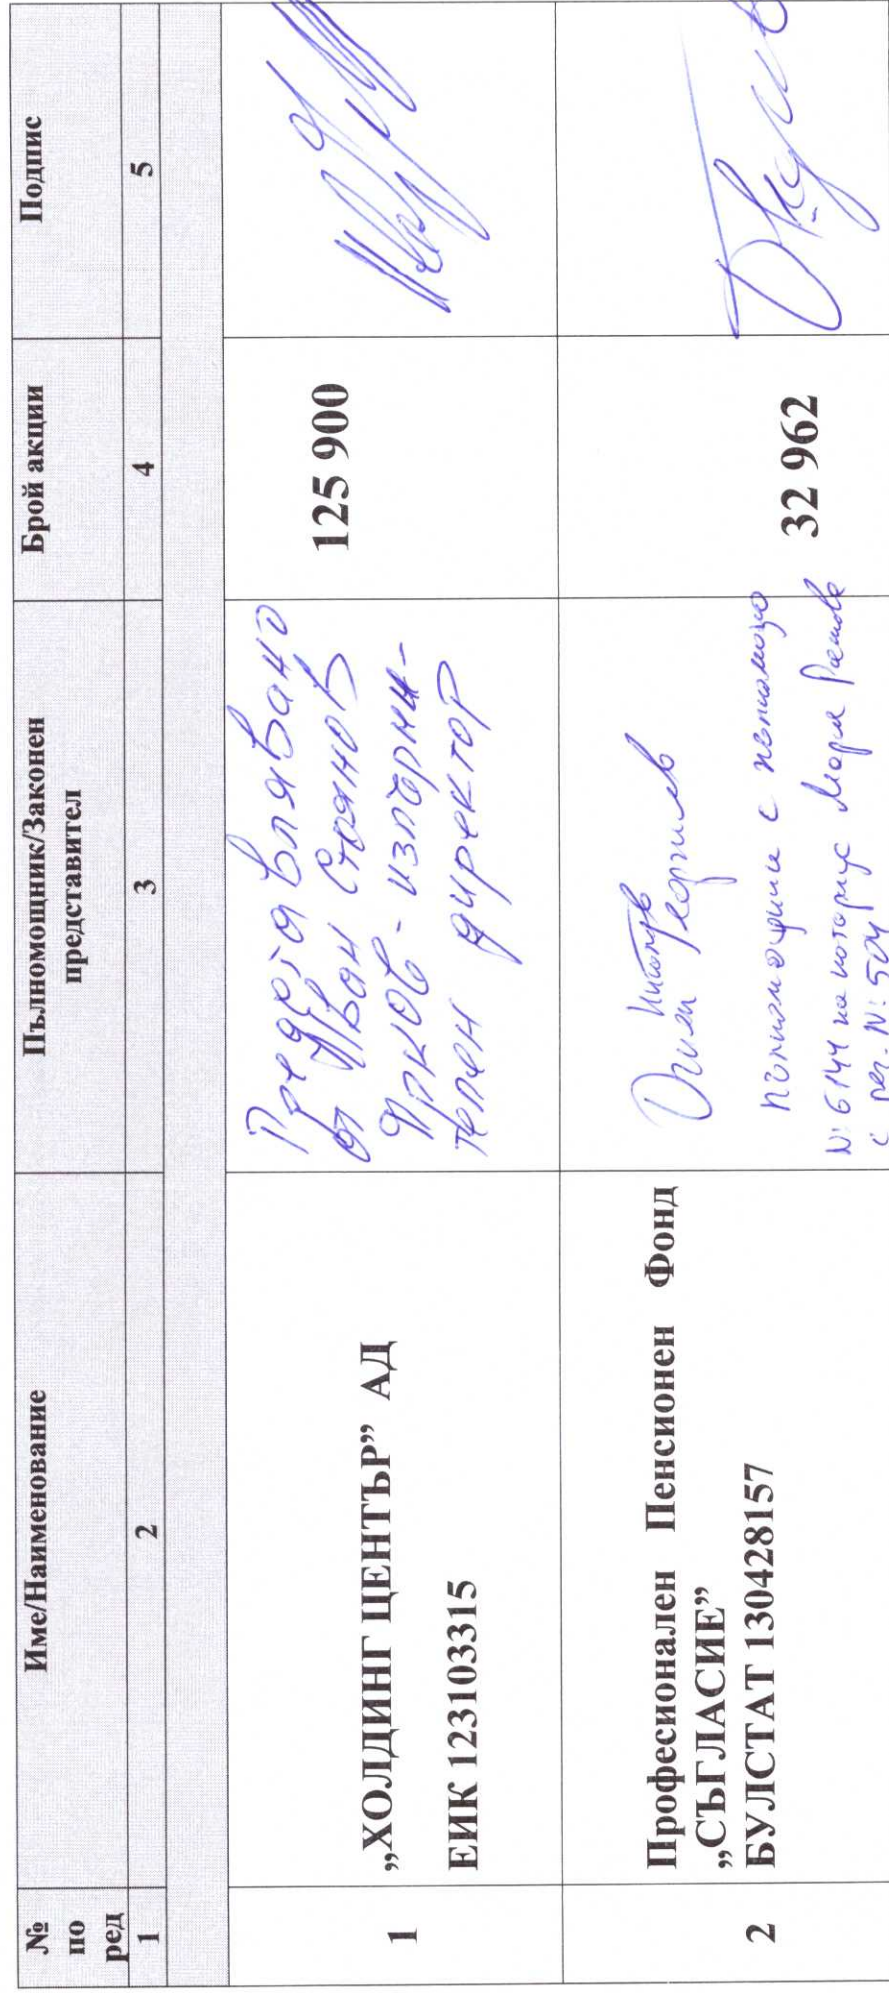 № по ред
Име/Наименование
Пълномощник/Законен представител
Брой акции
Подпис
1
2
3
4
5
1
„ХОЛДИНГ ЦЕНТЪР” АД
ЕИК 123103315
Представлявано
от Иван Стоянов
Ярков - изпълни-
телен директор
125 900
2
Професионален Пенсионен Фонд
„СЪГЛАСИЕ”
БУЛСТАТ 130428157
пълномощник с пълномощно
№ 6144 на нотариус Мария
с рег. №: 504
32 962